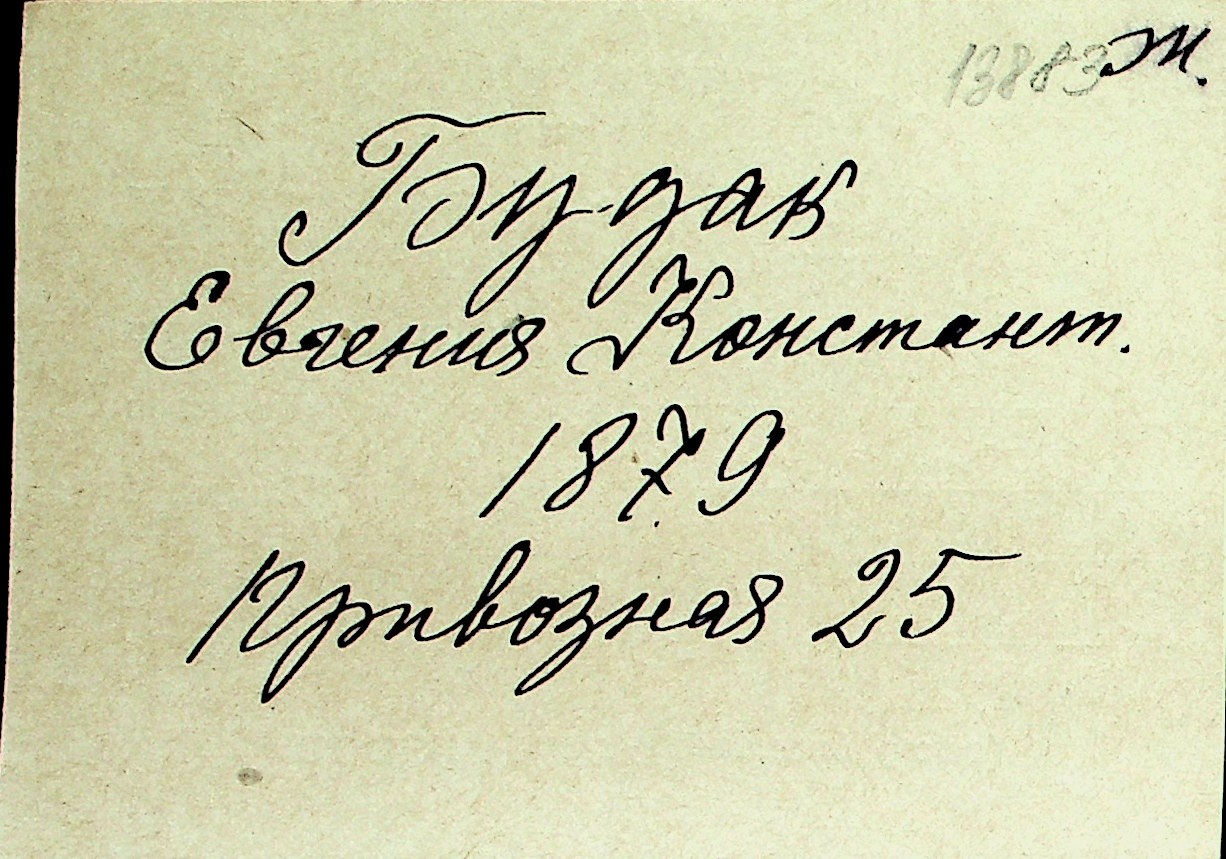 13883 ж.
Будак
Евгения Констант.
1879
Привозная 25